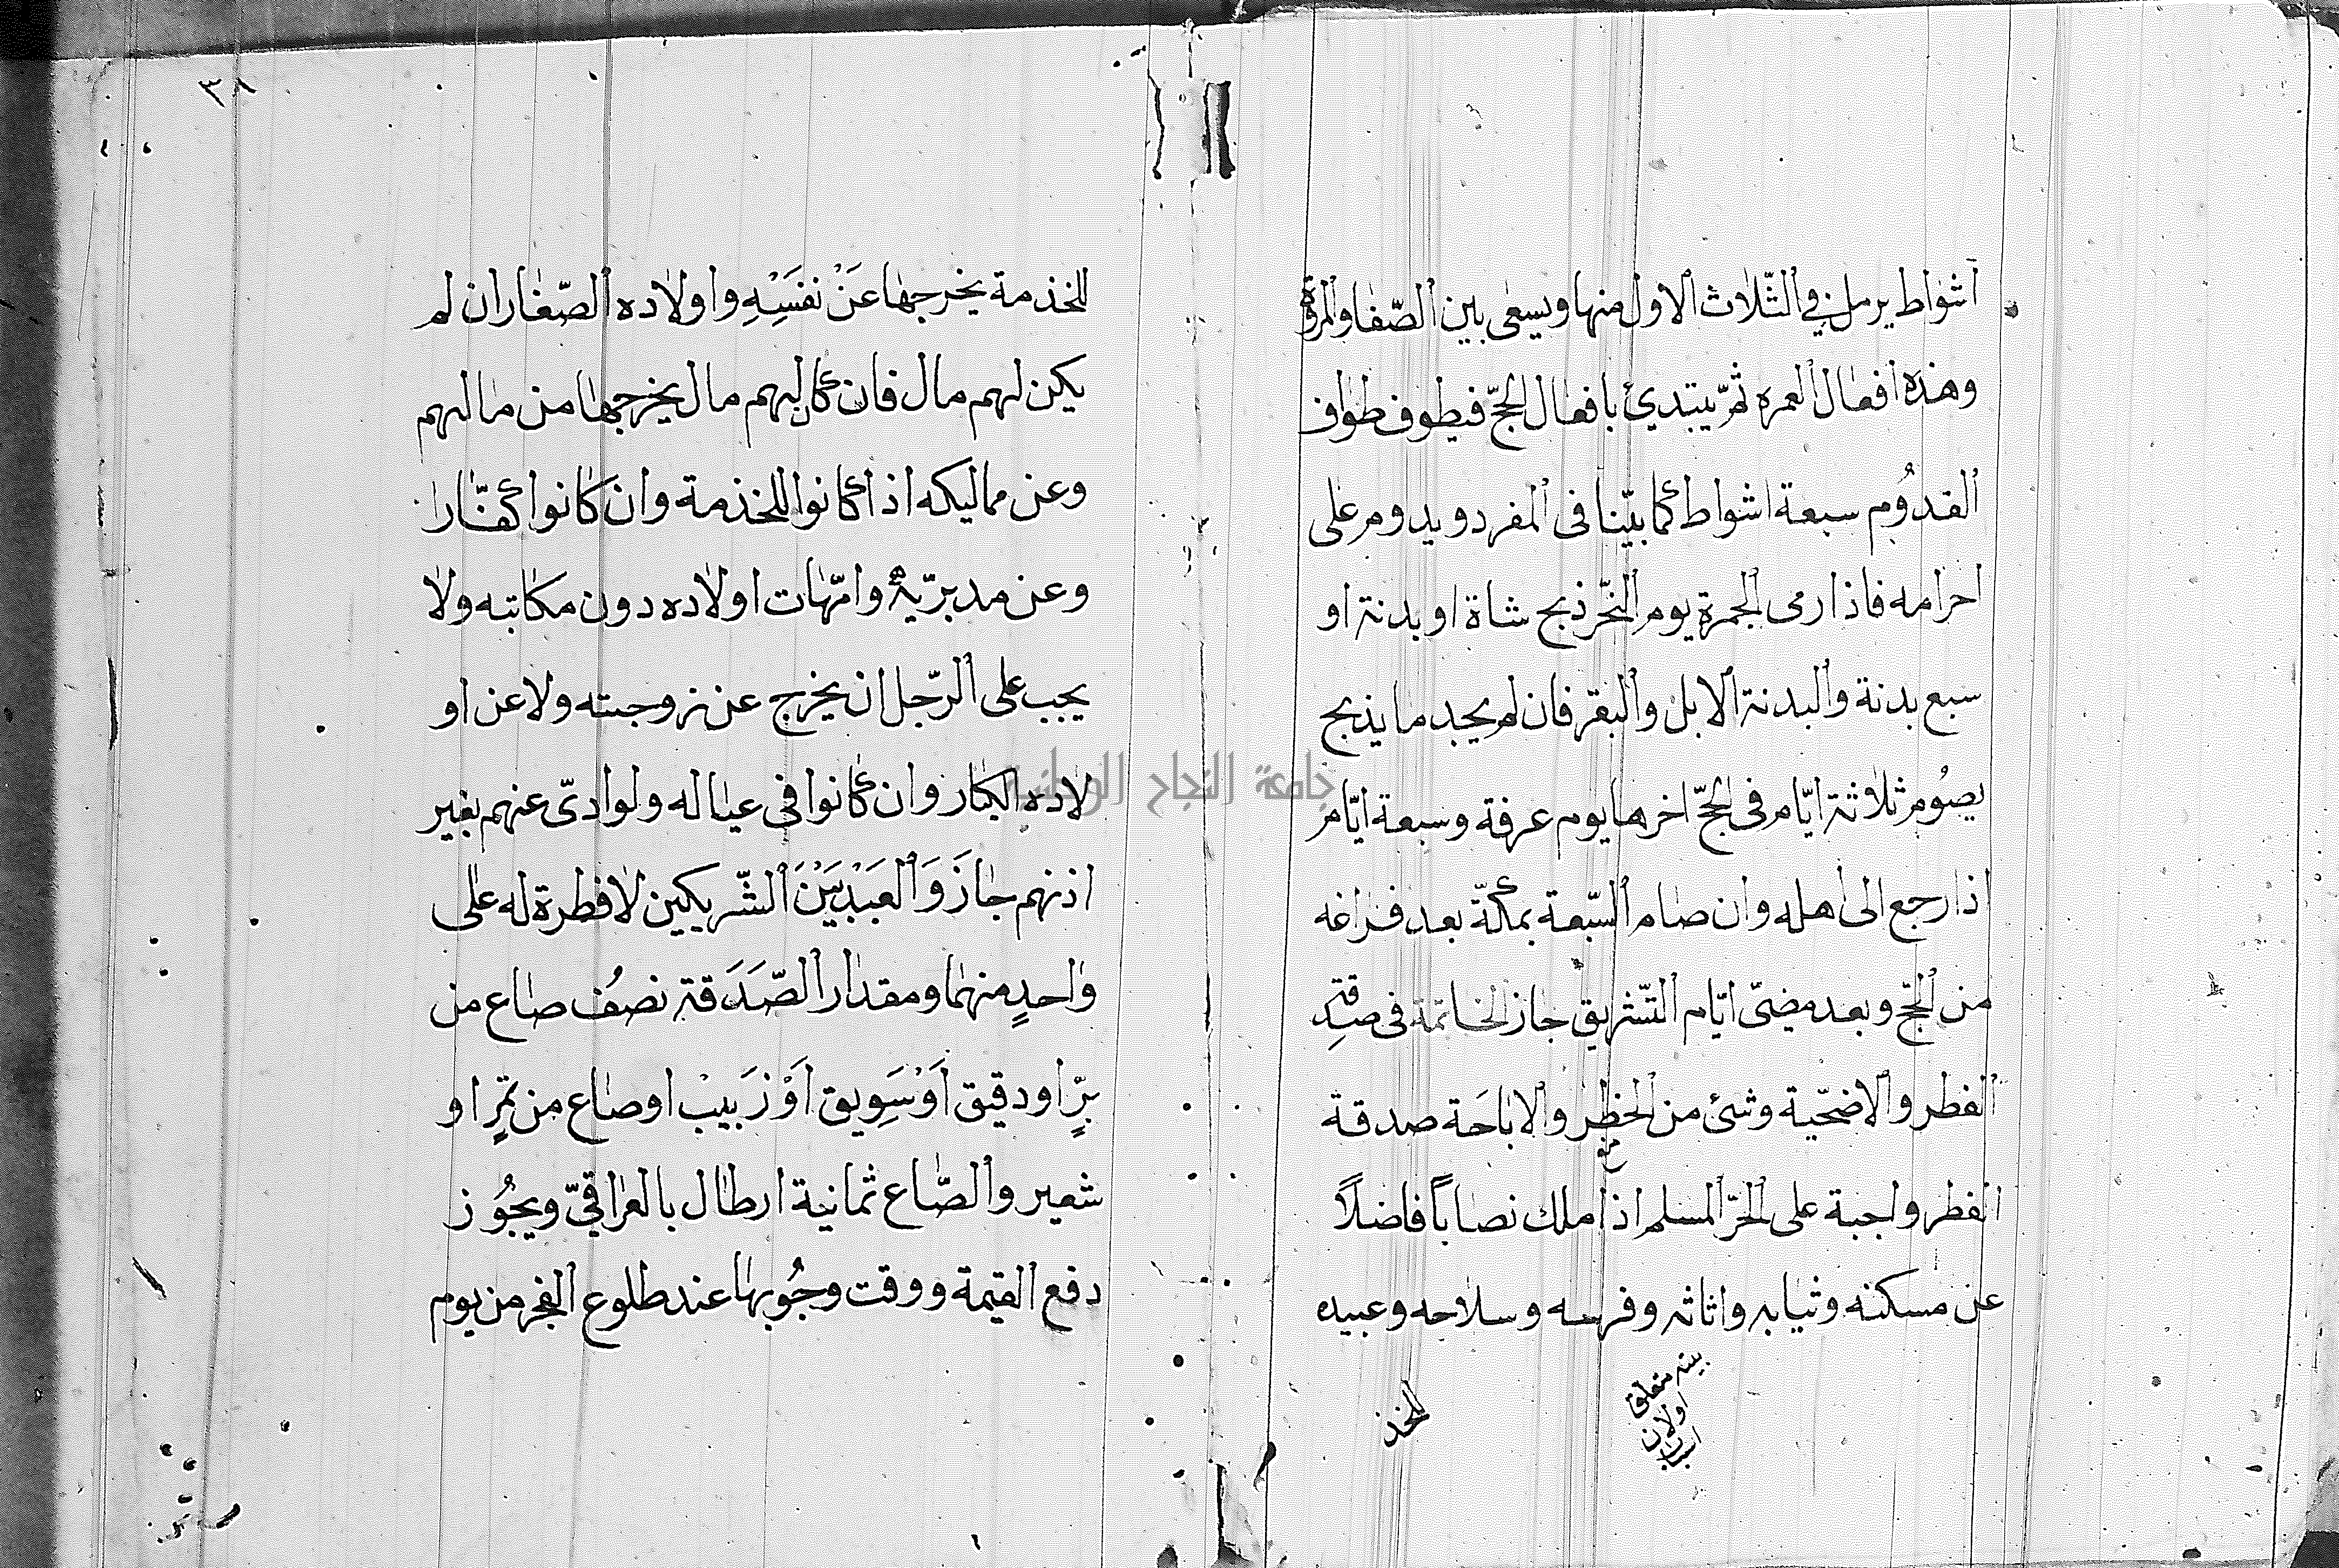 اشواط يرمل في الثّلاث الاول منها ويسعى بين الصّفا والمروة
وهذه افعال العمره ثمّ يبتدئ بافعال الحجّ فيطوف طواف
القدُوم سبعة اشواط كما بيّنا فى المفرد ويدوم على
احرامه فاذا رمى الجمرة يوم النّحر ذبح شاة او بدنة او
سبع بدنة والبدنة الابل والبقر فان لم يجد ما يذبح
يصُوم ثلاثة ايّام فى الحجّ اخرها يوم عرفة وسبعة ايّام
اذا رجع الى اهله وان صام السّبعة بمكّة بعد فراغه
من الحجّ وبعد مضىّ ايّام التّشريق جاز الخاتمة فى صدقة
الفطر والاضحّية وشئ من الحظر والاباحَة صدقة
الفطر واجبة على الحرّ المسلم اذا ملك نصاباً فاضلاً
عن مسكنه وثيابه واثاثه وفرسه وسلاحه وعبيده
بيته متعلق
اولان
اسباب
للخذ
٣٨
للخذمة يخرجها عَنْ نفسِهِ واولاده الصّغار ان لم
يكن لهم مال فان كان لهم مال يخرجها من مالهم
وعن مماليكه اذا كانوا للخذمة وان كانوا كفّارا
وعن مدبريّه وامّهات اولاده دون مكاتبه ولا
يجب على الرّجل ان يخرج عن زوجته ولا عن او
لاده الكبار وان كانوا فى عياله ولو ادىّ عنهم بغير
اذنهم جازَ وَالعَبْد بَيْنَ الشّريكين لا فطرة له على
واحدٍ منهما ومقدار الصّدَقة نصُف صاع من
برٍّ او دقيق اَوْ سَوِيق اَوْ زَبيب او صاع من تمرٍ او
شعير والصّاع ثمانية ارطال بالعراقىّ ويجُوز
دفع القيمة ووقت وجُوبها عند طلوع الفجر من يوم
جامعة النجاح الوطنية